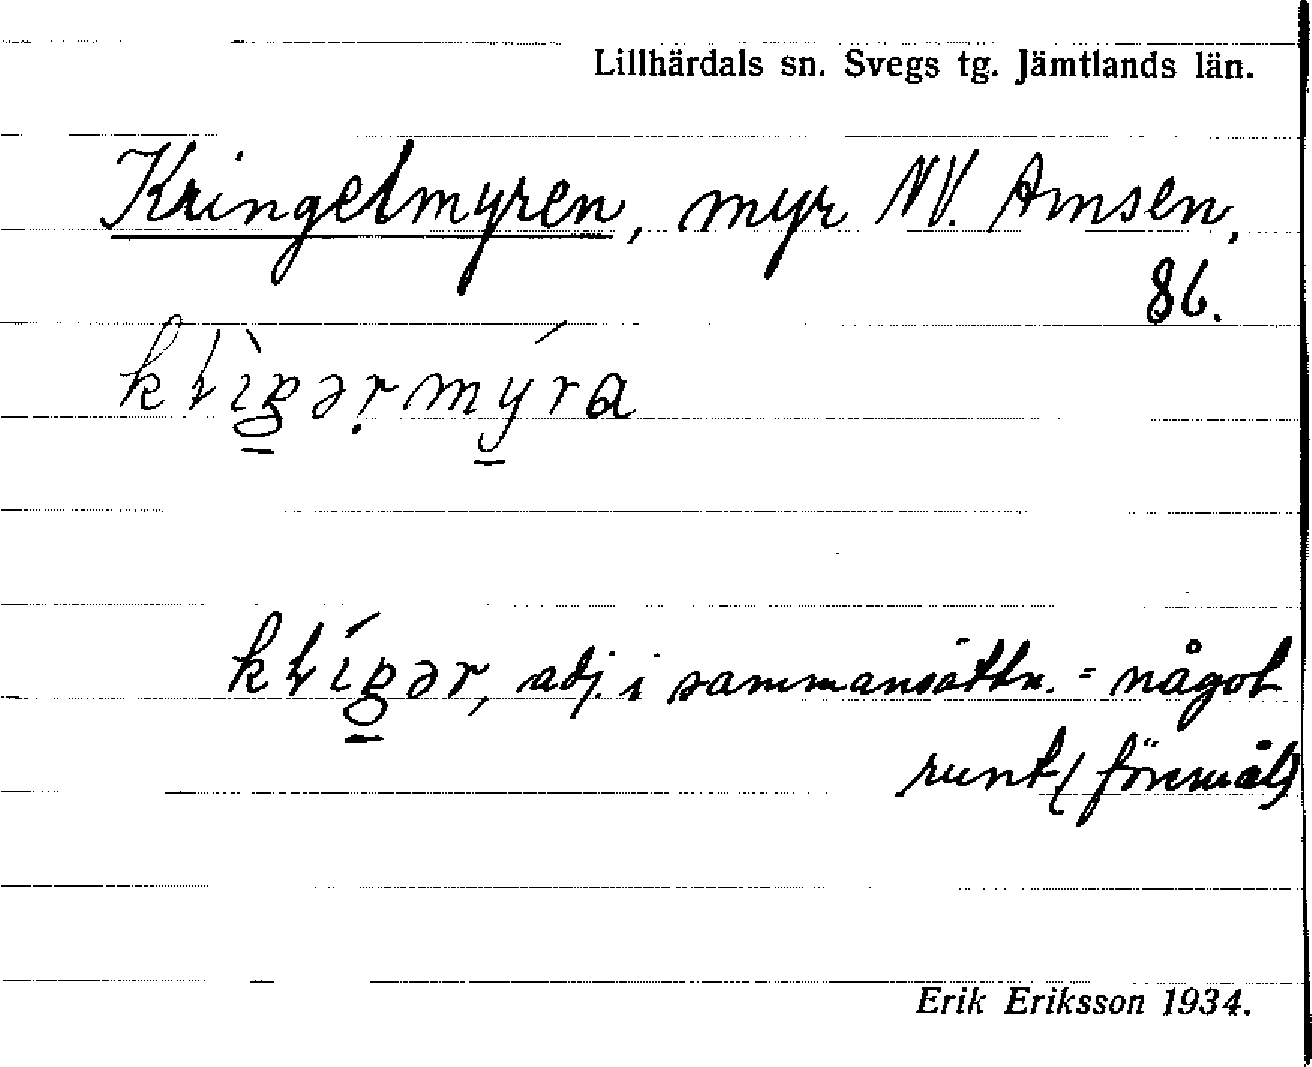 Lillhärdals sn. Svegs tg. Jämtlands län.
Kringelmyren, myr NV. Amsen,
86.
krìgərmýra
krígər, adj. i sammansättn. = något
runt (föremål)
Erik Eriksson 1934.